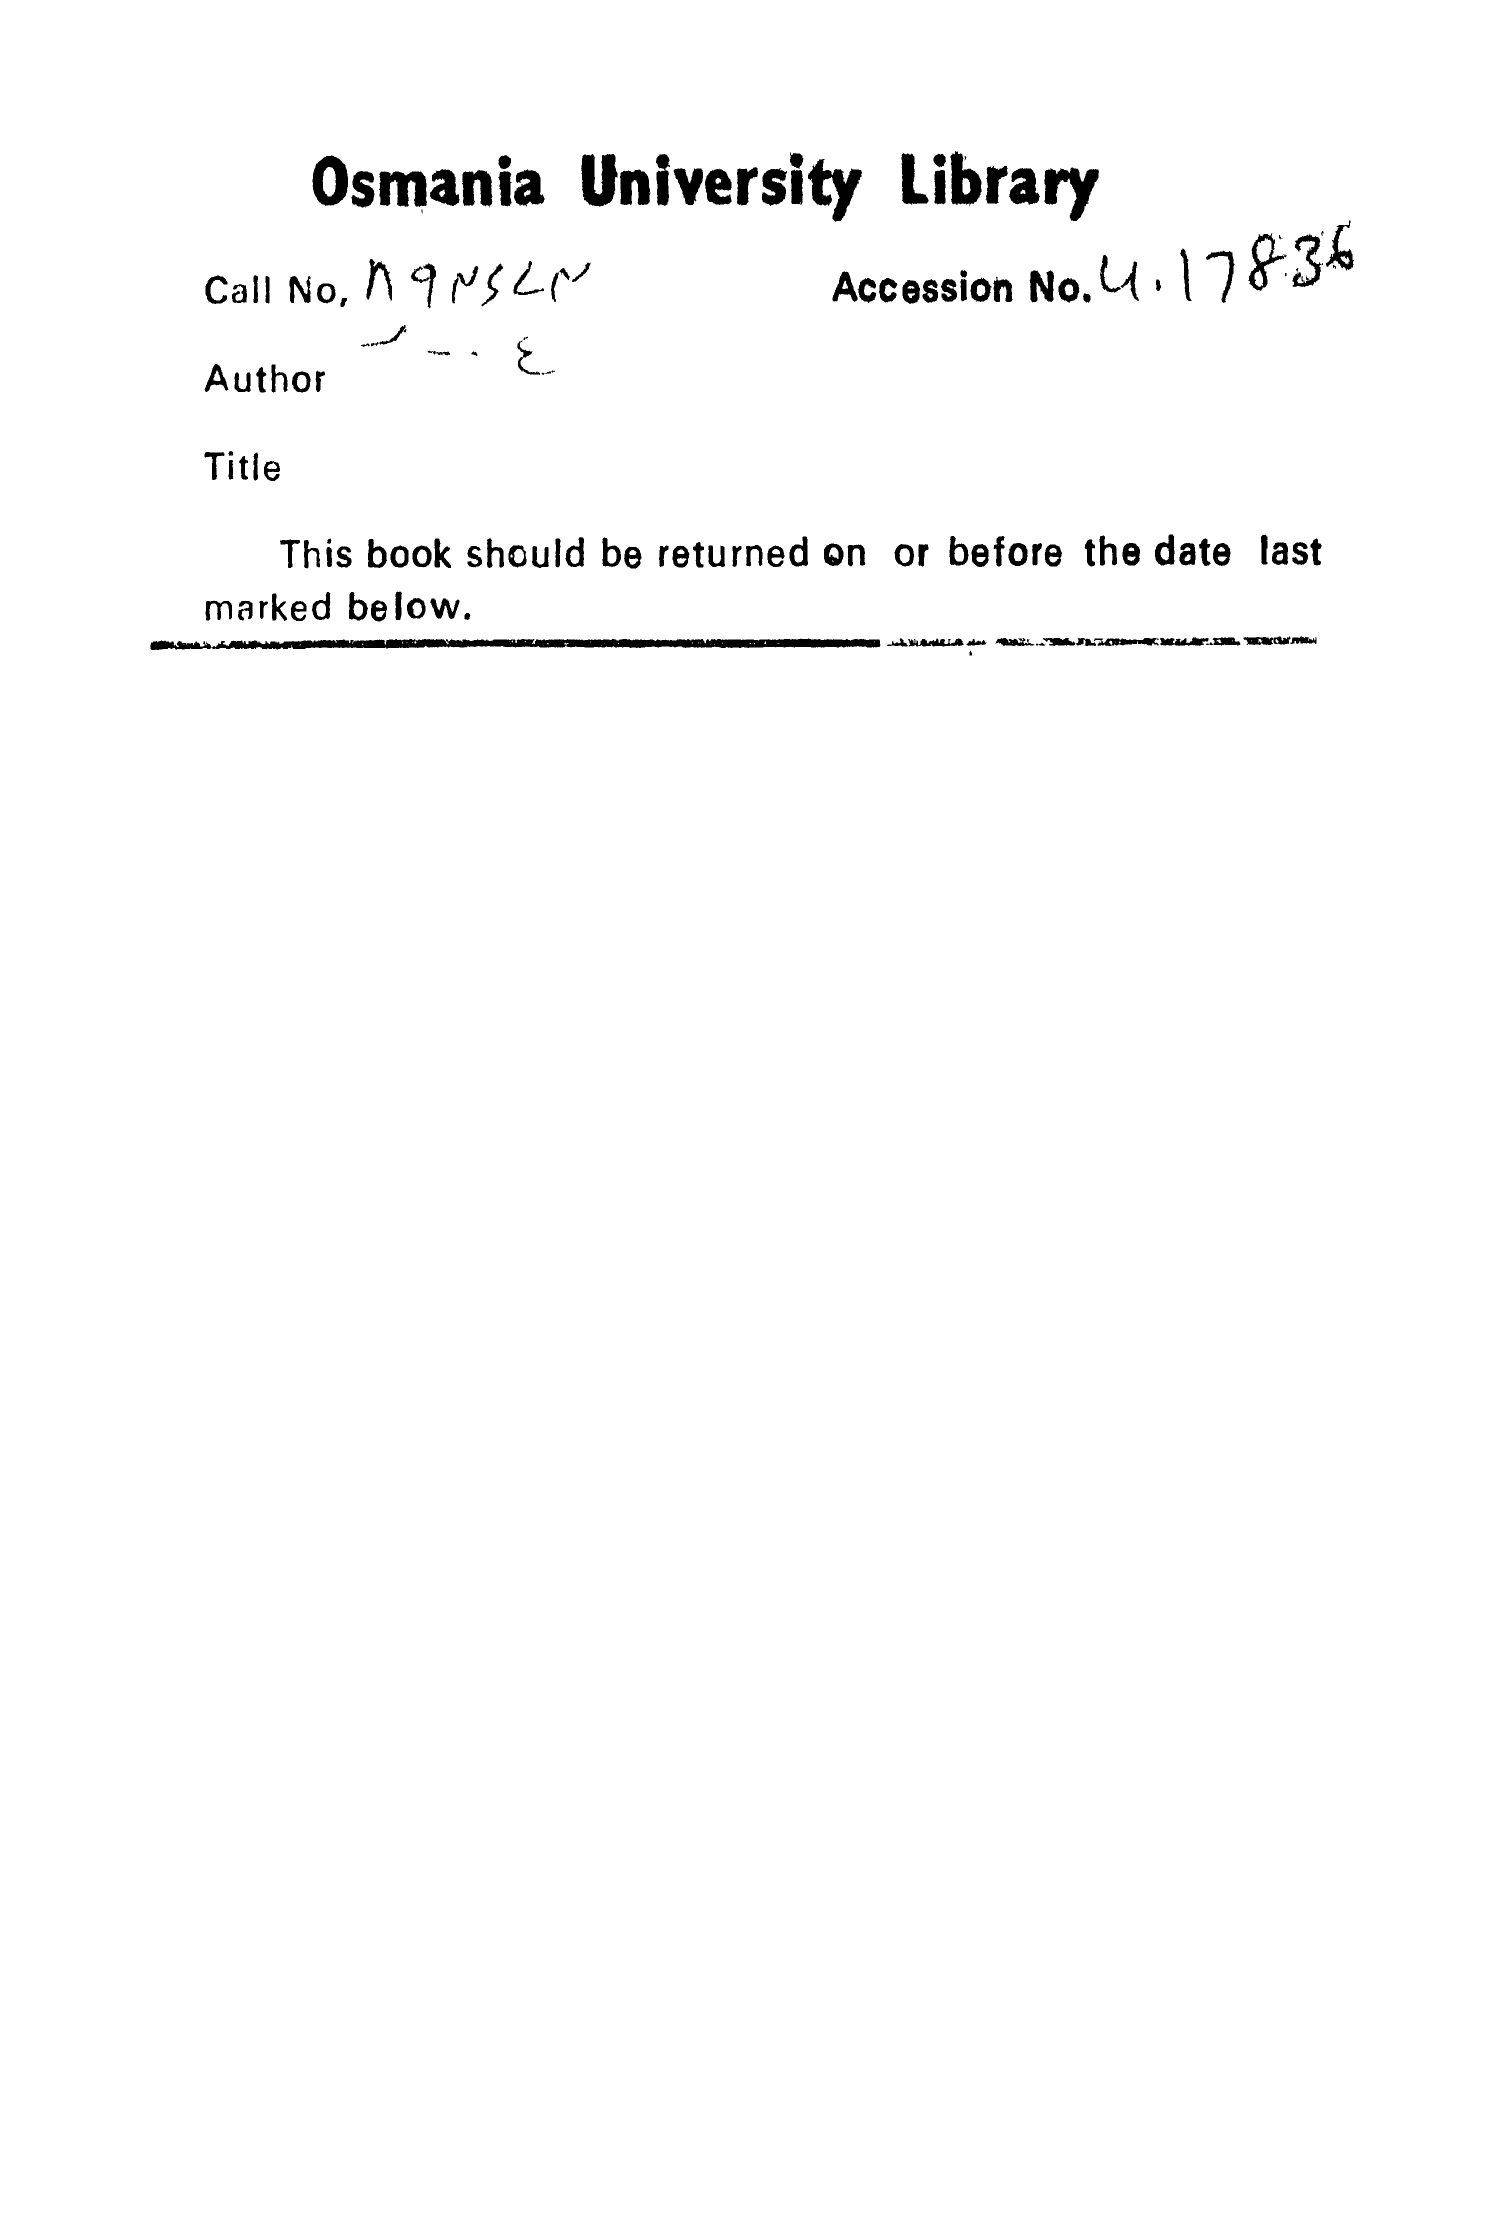 Osmania University Library
Call No. Accession No. U.17836
Author
Title
This book should be returned on or before the date last
marked below.